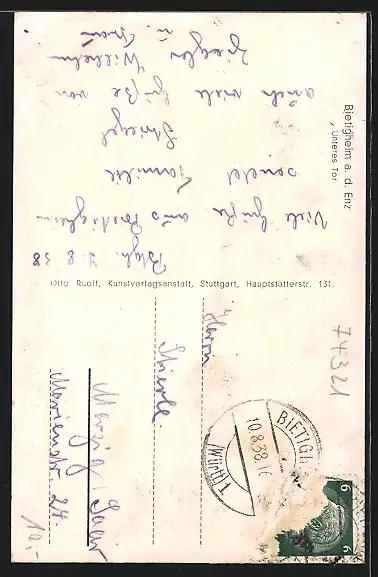 Bietigheim a. d. Enz
Unteres Tor
Btgh. 9.8.38
Viele Grüße aus Bietigheim
sendet Familie
Striegel
auch viele Grüße von
Ziegler Wilhelm
u. Frau
Otto Ruoff, Kunstverlagsanstalt, Stuttgart, Hauptstätterstr. 131.
Herrn
Stierle.
Merzig / Saar
Marienstr. 24
BIETIGH
10.8.38.
(Württ)
6
6
74321
10,-